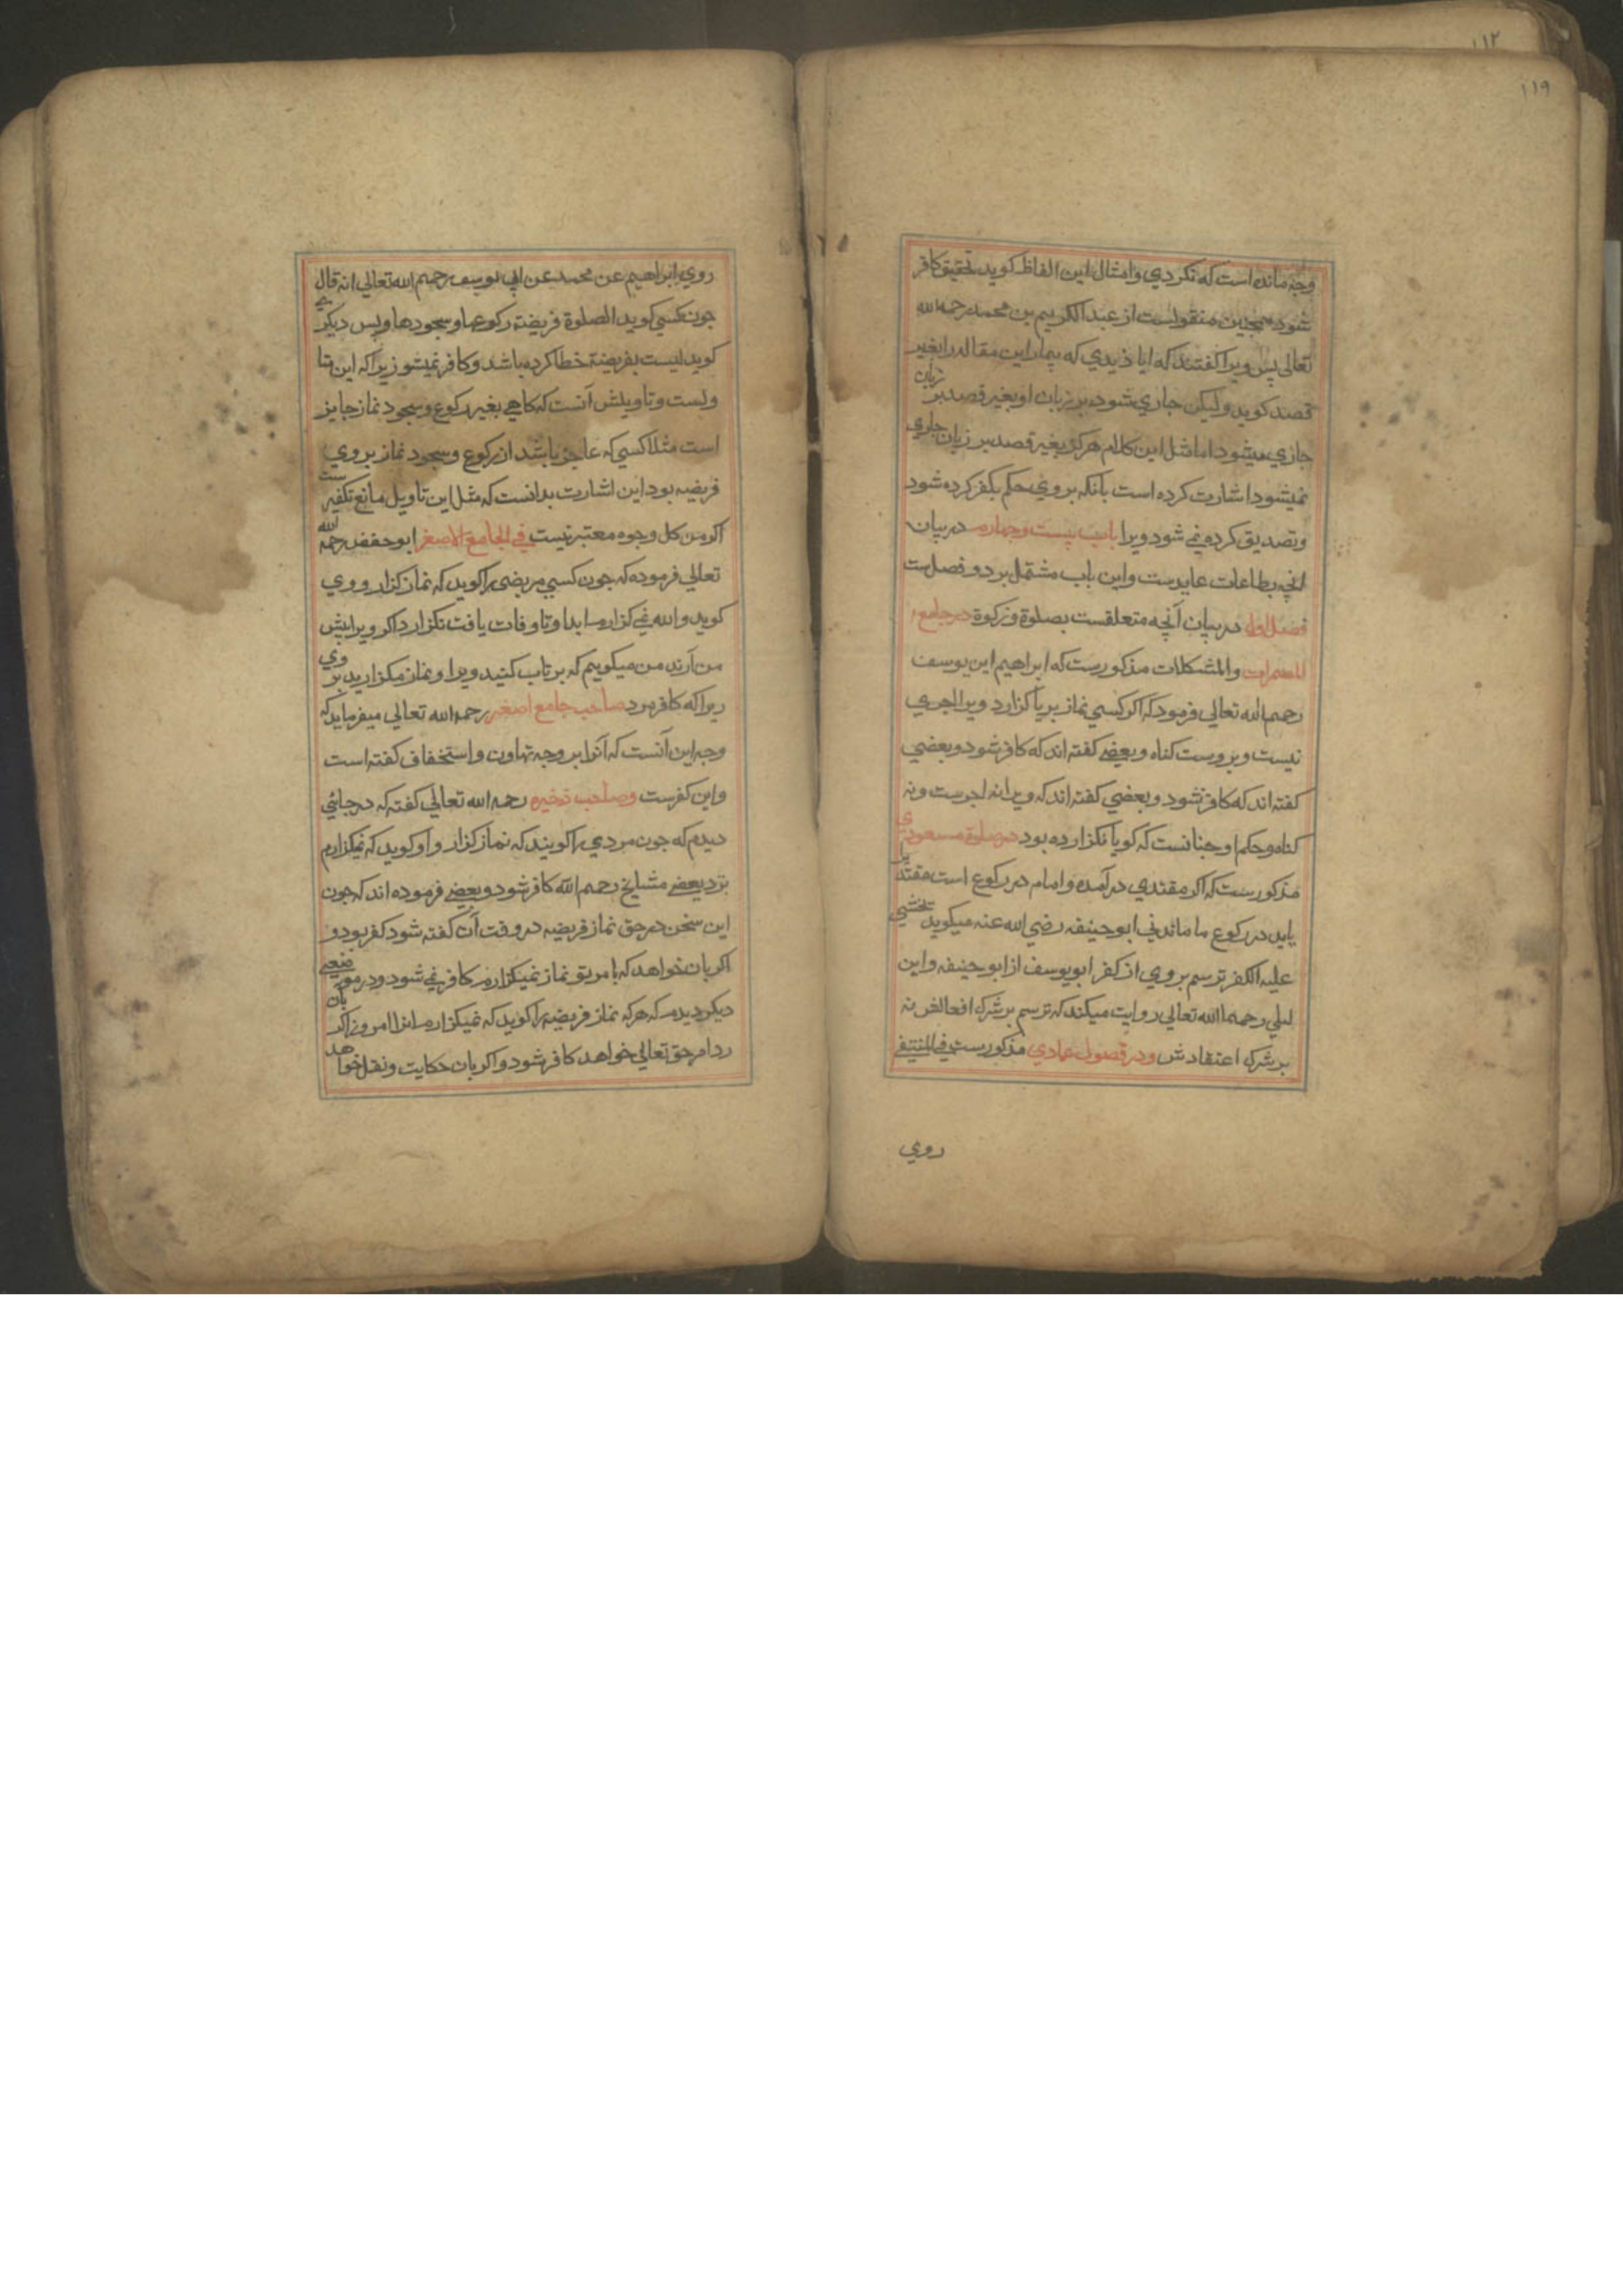 ١١٢
١١٩
وجه مانده است که نکردي وامثال این الفاظ کوید تحقیق کافر
شود همچنین منقولست از عبد الکریم بن محمد رحمه الله
تعالی پس ویرا کفتند که ایا ندیدي که بیمار این مقاله را بغیر
قصد کوید ولیکن جاري شود بر زبان او بغیر قصد بر زبان
جاري میشود اما مثل این کلام هرکز بغیر قصد بر زبان جاري
نمیشود اشارت کرده است بانکه بروي حکم بکفر کرده شود
وتصدیق کرده نمي شود ویرا باب بیست وچهارم در بیان
انچه بطاعات عایدست واین باب مشتمل بر دو فصل ست
فصل اول در بیان آنچه متعلقست بصلوة وزکوة در جامع
المضمرات والمشکلات مذکورست که ابراهیم ابن یوسف
رحمه الله تعالی فرمود که اکر کسي نماز بریا کزارد ویرا اجري
نیست وبروست کناه وبعضي کفته اند که کافر شود وبعضي
کفته اند که کافر نشود وبعضي کفته اند که ویرا نه اجرست ونه
کناه وحکم او چنانست که کویا نکزارده بود در صلوة مسعودي
مذکورست که اکر مقتدي در آمده وامام در رکوع است مقتدا
پاید در رکوع ما ماند ني ابو حنیفه رضي الله عنه میکوید تخشي
علیه الکفر ترسم بروي از کفر ابو یوسف از ابو حنیفه وابن
لیلي رحمهما الله تعالی روایت میکند که ترسم بر شرک افعالش نه
بر شرک اعتقادش ودر فصول عمادي مذکورست في المنتقي
روي
روي ابراهیم عن محمد عن ابي یوسف رحمهم الله تعالی انه قال
جون کسي کوید الصلوة فریضة رکوعها وسجودها وپس دیکري
کوید لیست بفریضة خطا کرده باشد وکافر نمیشو زیرا که این متا
ولست وتاویلش آنست که کاهي بغیر رکوع وسجود نماز جایز
است مثلا کسي که عاجز باشد از رکوع وسجود نماز بروي
فریضه بود این اشارت بدانست که مثل این تاویل مانع تکفیر ست
اکر من کل وجوه معتبر نیست في الجامع الاصغر ابو حفض رحمه الله
تعالی فرموده که جون کسي مریضي را کوید که نماز کزار ووي
کوید والله نمي کزارم ابدا وتا وفات یافت نکزارد اکر ویرا پیش
من آرند من میکویم که بر تاب کنید ویرا ونماز مکزارید بر وي
زیرا که کافر مرد صاحب جامع اصغر رحمه الله تعالی میفرماید که
وجه این آنست که آنرا بر وجه تهاون واستخفاف کفته است
واین کفرست وصاحب ذخیره رحمه الله تعالی کفته که در جائي
دیدم که جون مردي را کویند که نماز کزار واو کوید که نمیکزارم
نزد بعضي مشایخ رحمهم الله کافر شود وبعضي فرموده اند که جون
این سخن در حق نماز فریضه در وقت آن کفته شود کفر بود و
اکر بان خواهد که بامر تو نماز نمیکزارم کافر نمي شود ودر موضعي
دیکر دیدم که هر که نماز فریضه را کوید که نمیکزارم انرا امروز اکر بان
رد امر حق تعالی خواهد کافر شود واکر بان حکایت ونقل خواهد